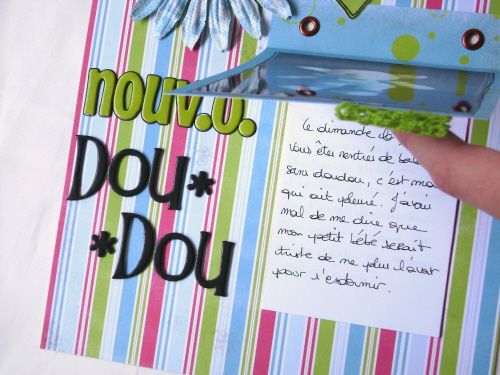 nouv.o.
Dou*
*Dou
Ce dimanche
Vous êtes rentrés de
sans doudou, c'est
qui ait pleuré. J'avais
mal de me dire que
mon petit bébé serait
triste de ne plus l'avoir
pour s'endormir.